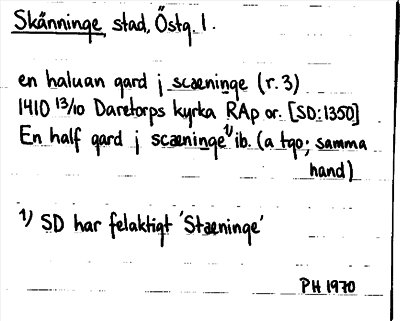 Skänninge, stad, Östg. l.
en haluan gard j scæninge (r.3)
1410 13/10 Daretorps kyrka RAp or. [SD:1350]
En half gard j scæninge 1) ib. (a tgo; samma
hand)
1) SD har felaktigt 'Stæninge'
PH 1970